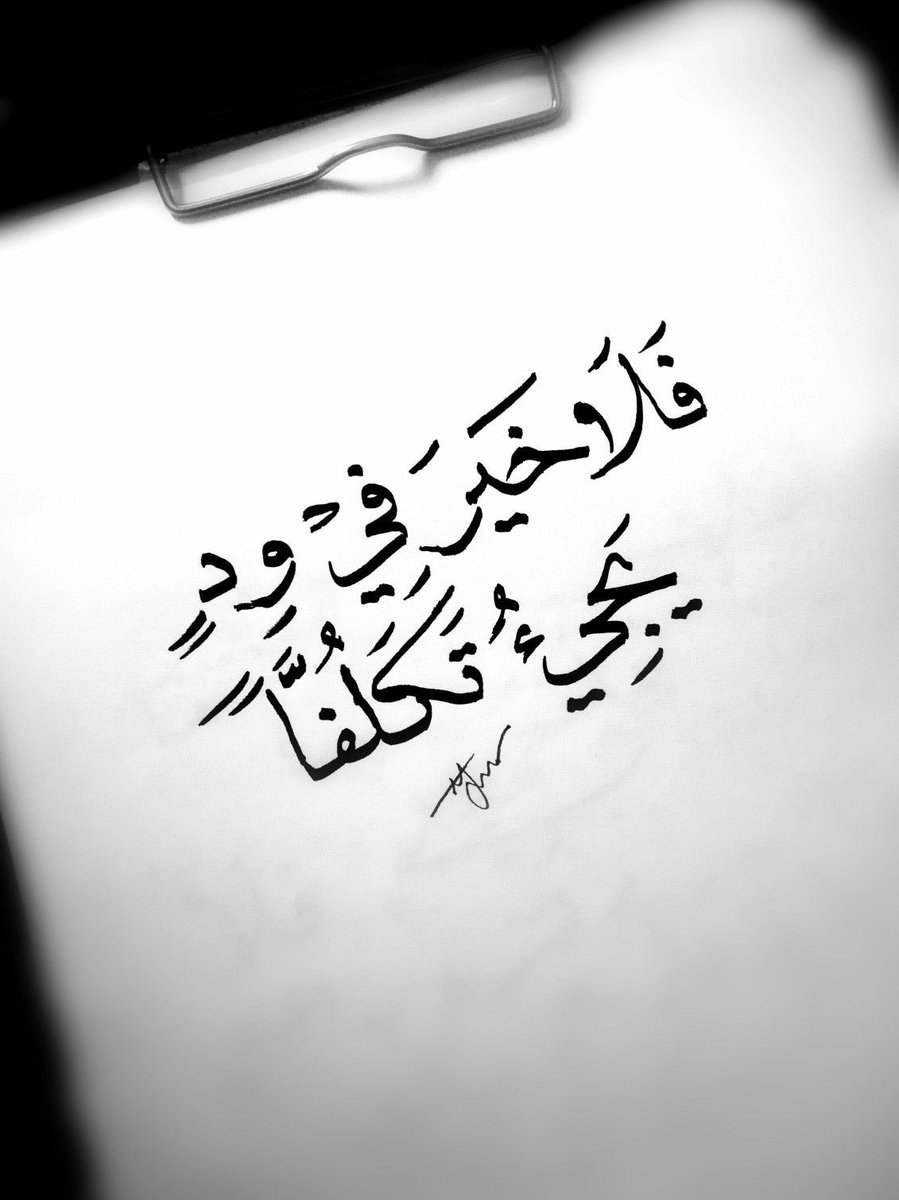 فَلَا خَيَرَ فِيْ وِدٍ
يَجِيُء تَكَلُفّاً